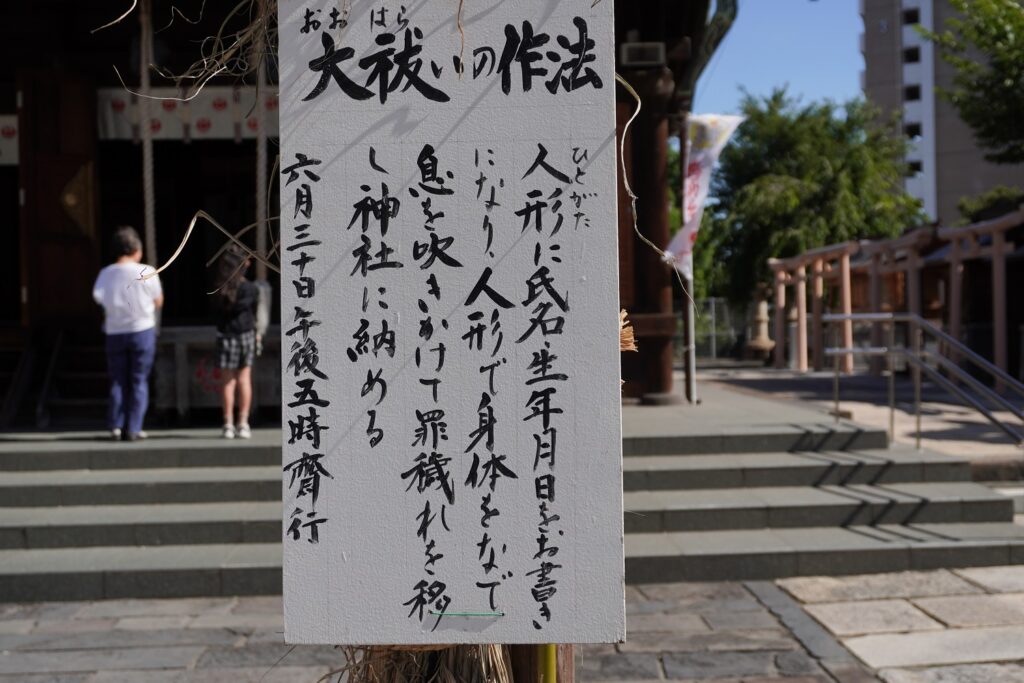 おおはら
大祓いの作法
ひとがた
人形に氏名、生年月日をお書き
になり、人形で身体をなで
息を吹きかけて罪穢れを移
し神社に納める
六月三十日午後五時齋行